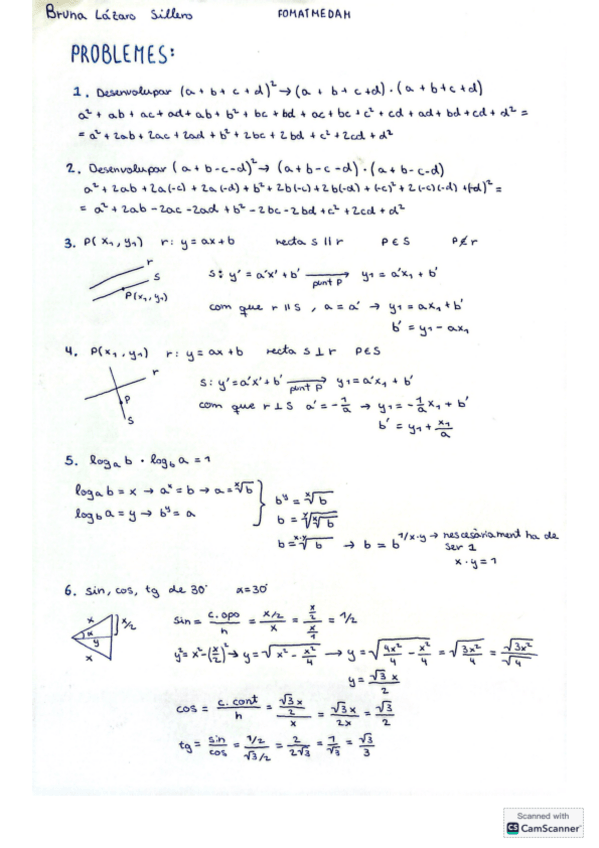 Bruna Lázaro Sillero FOMATMEDAM
PROBLEMES:
1. Desenvolupar (a + b + c + d)² → (a + b + c + d) · (a + b + c + d)
a² + ab + ac + ad + ab + b² + bc + bd + ac + bc + c² + cd + ad + bd + cd + d² =
= a² + 2ab + 2ac + 2ad + b² + 2bc + 2bd + c² + 2cd + d²
2. Desenvolupar (a + b - c - d)² → (a + b - c - d) · (a + b - c - d)
a² + 2ab + 2a(-c) + 2a(-d) + b² + 2b(-c) + 2b(-d) + (-c)² + 2(-c)(-d) + (-d)² =
= a² + 2ab - 2ac - 2ad + b² - 2bc - 2bd + c² + 2cd + d²
3. P(x₁, y₁) r: y = ax + b recta s ∥ r P ∈ S P ∉ r
r
P(x₁, y₁)
s: y' = a'x' + b' → punt P y₁ = a'x₁ + b'
com que r ∥ s, a = a' → y₁ = ax₁ + b'
b' = y₁ - ax₁
4. P(x₁, y₁) r: y = ax + b recta s ⊥ r P ∈ S
r
P
s
s: y' = a'x' + b' → punt P y₁ = a'x₁ + b'
com que r ⊥ s a' = -1/a → y₁ = -1/a x₁ + b'
b' = y₁ + x₁/a
5. logₐ b · log_b a = 1
logₐ b = x → aˣ = b → a = ˣ√b
log_b a = y → bʸ = a
bʸ = ˣ√b
b = ʸ√(ˣ√b)
b = ˣ·ʸ√b → b = b^(1/x·y) → nescesàriament ha de
ser 1
x · y = 1
6. sin, cos, tg de 30° α = 30°
x x/2
α y
x
sin = c. opo/h = (x/2)/x = (x/2)/(x/1) = 1/2
y² = x² - (x/2)² → y = √(x² - x²/4) → y = √(4x²/4 - x²/4) = √(3x²/4) = √3x²/√4
y = √3 x/2
cos = c. cont/h = (√3x/2)/x = √3x/2x = √3/2
tg = sin/cos = (1/2)/(√3/2) = 2/2√3 = 1/√3 = √3/3
Scanned with
CS CamScanner